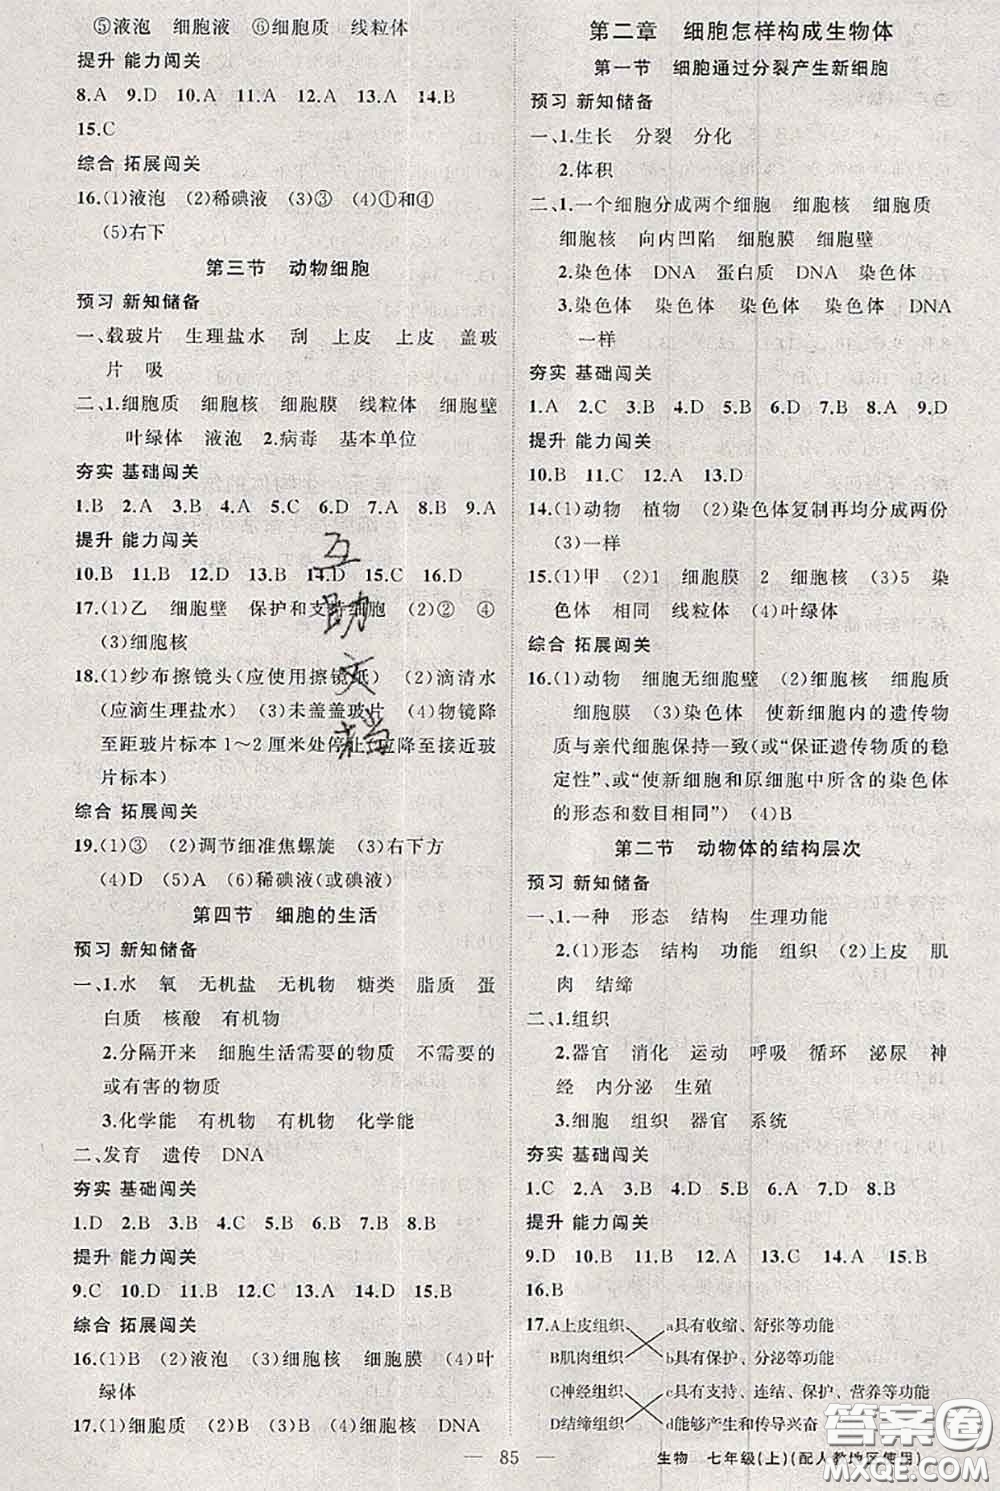 ⑤液泡 细胞液 ⑥细胞质 线粒体
提升 能力闯关
8.A 9.D 10.A 11.A 12.A 13.A 14.B
15.C
综合 拓展闯关
16.(1)液泡 (2)稀碘液 (3)③ (4)①和④
(5)右下
第三节 动物细胞
预习 新知储备
一、载玻片 生理盐水 刮 上皮 上皮 盖玻
片 吸
二、1.细胞质 细胞核 细胞膜 线粒体 细胞壁
叶绿体 液泡 2.病毒 基本单位
夯实 基础闯关
1.B 2.A 3.A 4.A 5.C 6.D 7.A 8.B 9.A
提升 能力闯关
10.B 11.B 12.D 13.B 14.D 15.C 16.D
17.(1)乙 细胞壁 保护和支持细胞 (2)② ④
(3)细胞核
18.(1)纱布擦镜头(应使用擦镜纸) (2)滴清水
(应滴生理盐水) (3)未盖盖玻片 (4)物镜降
至距玻片标本1～2厘米处停止(应降至接近玻
片标本)
综合 拓展闯关
19.(1)③ (2)调节细准焦螺旋 (3)右下方
(4)D (5)A (6)稀碘液(或碘液)
第四节 细胞的生活
预习 新知储备
一、1.水 氧 无机盐 无机物 糖类 脂质 蛋
白质 核酸 有机物
2.分隔开来 细胞生活需要的物质 不需要的
或有害的物质
3.化学能 有机物 有机物 化学能
二、发育 遗传 DNA
夯实 基础闯关
1.D 2.B 3.B 4.C 5.B 6.B 7.B 8.B
提升 能力闯关
9.C 10.D 11.D 12.B 13.A 14.D 15.B
综合 拓展闯关
16.(1)B (2)液泡 (3)细胞核 细胞膜 (4)叶
绿体
17.(1)细胞质 (2)B (3)B (4)细胞核 DNA
第二章 细胞怎样构成生物体
第一节 细胞通过分裂产生新细胞
预习 新知储备
一、1.生长 分裂 分化
2.体积
二、1.一个细胞分成两个细胞 细胞核 细胞质
细胞核 向内凹陷 细胞膜 细胞壁
2.染色体 DNA 蛋白质 DNA 染色体
3.染色体 染色体 染色体 染色体 DNA
一样
夯实 基础闯关
1.A 2.C 3.B 4.D 5.B 6.D 7.B 8.A 9.D
提升 能力闯关
10.B 11.C 12.A 13.D
14.(1)动物 植物 (2)染色体复制再均分成两份
(3)一样
15.(1)甲 (2)1 细胞膜 2 细胞核 (3)5 染
色体 相同 线粒体 (4)叶绿体
综合 拓展闯关
16.(1)动物 细胞无细胞壁 (2)细胞核 细胞质
细胞膜 (3)染色体 使新细胞内的遗传物
质与亲代细胞保持一致(或“保证遗传物质的稳
定性”、或“使新细胞和原细胞中所含的染色体
的形态和数目相同”) (4)B
第二节 动物体的结构层次
预习 新知储备
一、1.一种 形态 结构 生理功能
2.(1)形态 结构 功能 组织 (2)上皮 肌
肉 结缔
二、1.组织
2.器官 消化 运动 呼吸 循环 泌尿 神
经 内分泌 生殖
3.细胞 组织 器官 系统
夯实 基础闯关
1.C 2.A 3.B 4.D 5.B 6.A 7.D 8.B
提升 能力闯关
9.D 10.B 11.B 12.A 13.C 14.A 15.B
16.B
17.A上皮组织 a具有收缩、舒张等功能
B肌肉组织 b具有保护、分泌等功能
C神经组织 c具有支持、连结、保护、营养等功能
D结缔组织 d能够产生和传导兴奋
85
生物 七年级(上)(配人教地区使用)
互助文档
答案圈
MXQE.COM